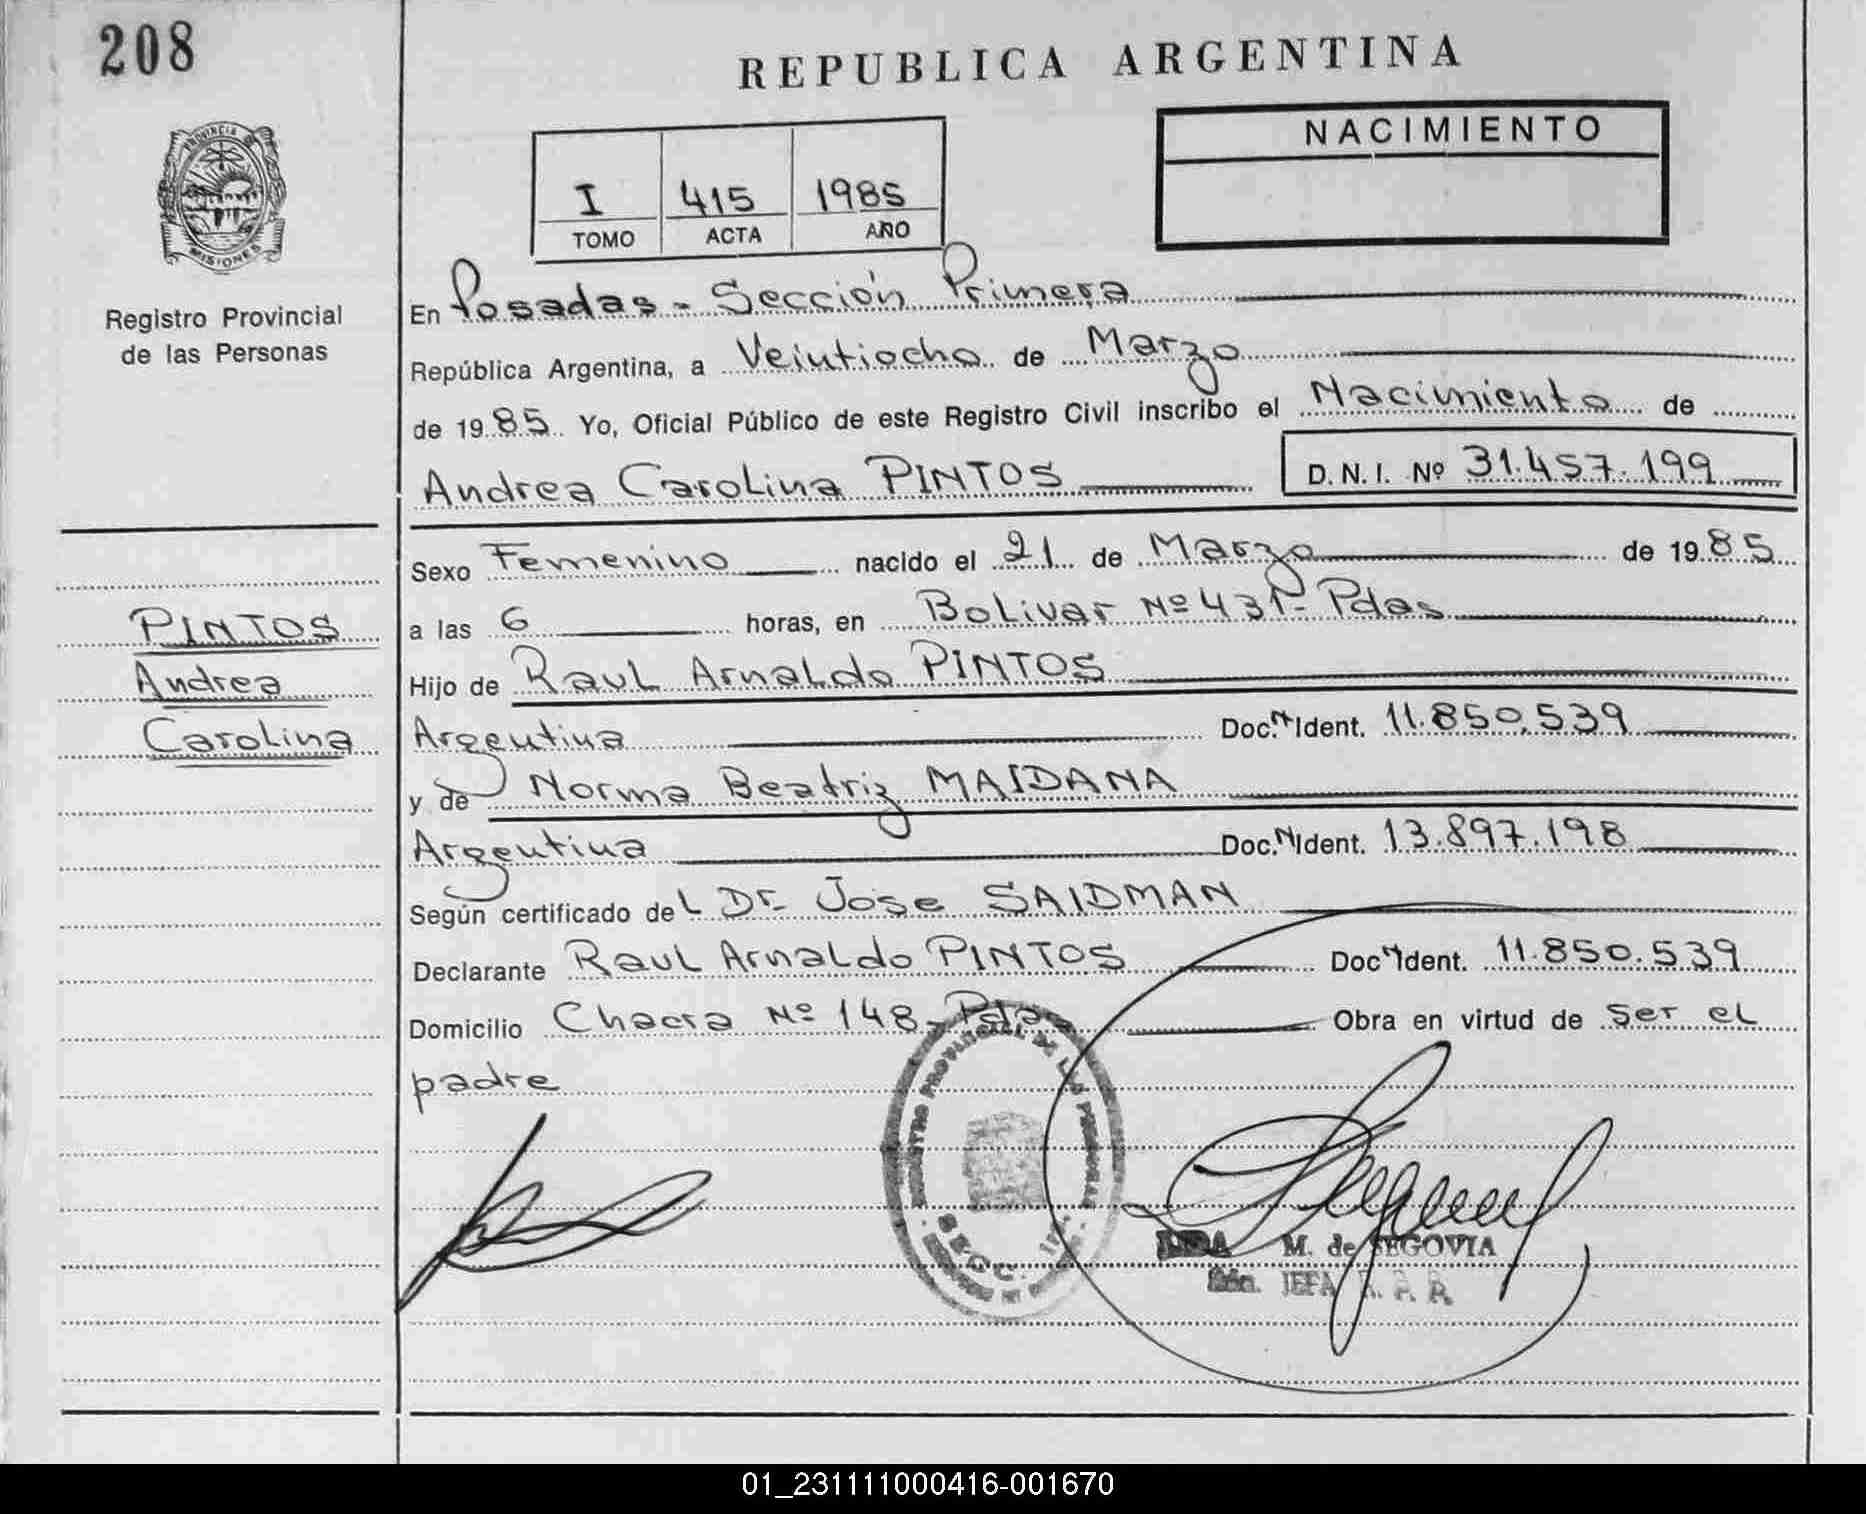 208
REPUBLICA ARGENTINA
NACIMIENTO
I 415 1985
TOMO ACTA AÑO
PROVINCIA DE
MISIONES
Registro Provincial
de las Personas
En Posadas - Sección Primera
República Argentina, a Veintiocho de Marzo
de 1985 Yo, Oficial Público de este Registro Civil inscribo el Nacimiento de
Andrea Carolina PINTOS D.N.I. Nº 31.457.199
Sexo Femenino nacido el 21 de Marzo de 1985
PINTOS
Andrea
Carolina
a las 6 horas, en Bolivar Nº 431- Pdas
Hijo de Raul Arnaldo PINTOS
Argentina Doc. Ident. 11.850.539
y de Norma Beatriz MAIDANA
Argentina Doc. Ident. 13.897.198
Según certificado del Dr. Jose SAIDMAN
Declarante Raul Arnaldo PINTOS Doc Ident. 11.850.539
Domicilio Chacra Nº 148- Pdas Obra en virtud de ser el
padre
REGISTRO PROVINCIAL DE LAS PERSONAS
SECC. 1ra.
M. de SEGOVIA
JEFA R. P. P.
01_231111000416-001670